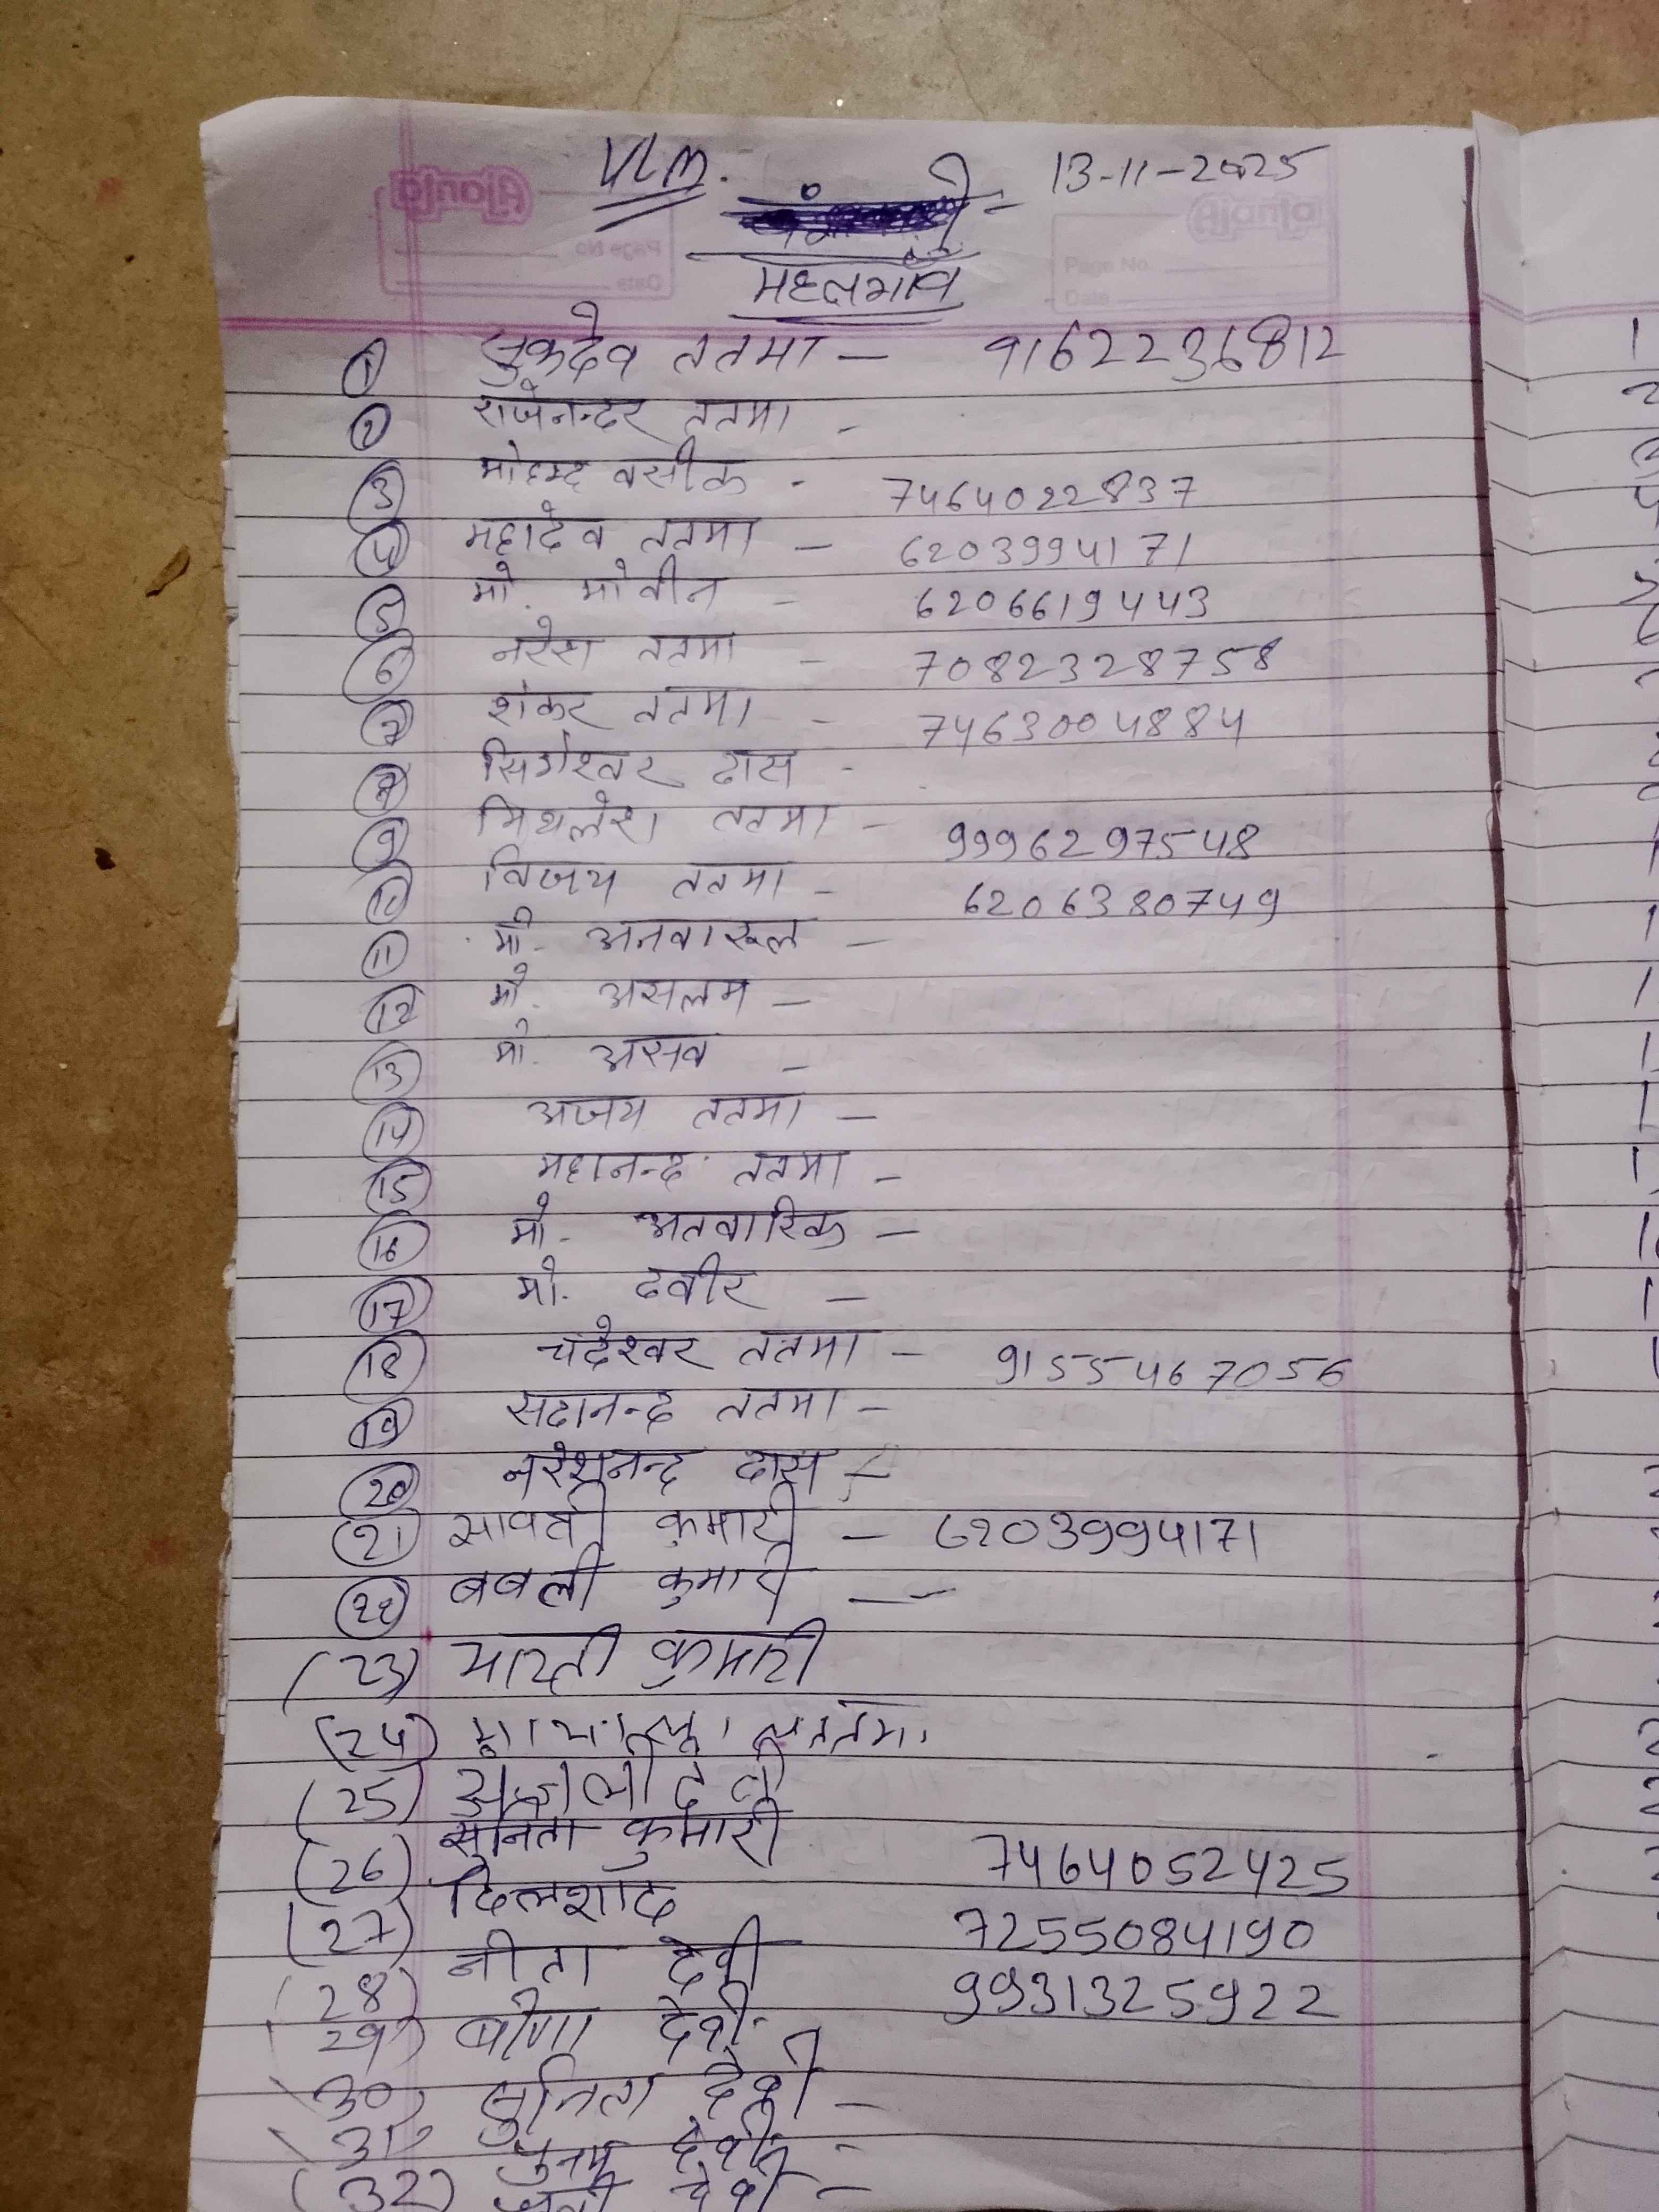 VLM.
13-11-2025
Ajanta
Ajanta
Page No.
Page No
Date
Date
महलगाँव
1 सुकदेव ततमा - 9162236812
2 राजेनन्दर ततमा -
3 मोहम्द वसीक - 7464022837
4 महादेव ततमा - 6203994171
5 मो. मोवीन - 6206619443
6 नरेश ततमा - 7082328758
7 शंकर ततमा - 7463004884
8 सिगेश्वर दास -
9 मिथलेश ततमा - 9996297548
10 विजय ततमा - 6206380749
11 मो. अनवारूल -
12 मो. असलम -
13 मो. असव -
14 अजय ततमा -
15 महानन्द ततमा -
16 मो. अतवारिक -
17 मो. दवीर -
18 चदेश्वर ततमा - 9155467056
19 सदानन्द ततमा -
20 नरेशनन्द दास -
21 सावती कुमारी - 6203994171
22 बबली कुमारी -
(23) भारती कुमारी
(24)
(25) देवी
(26) सुनिता कुमारी 7464052425
(27) दिलशाद 7255084190
(28) नीता देवी 9931325922
(29) बीणा देवी
(30) सुनिता देवी -
(31) पुनम देवी -
(32) देवी -